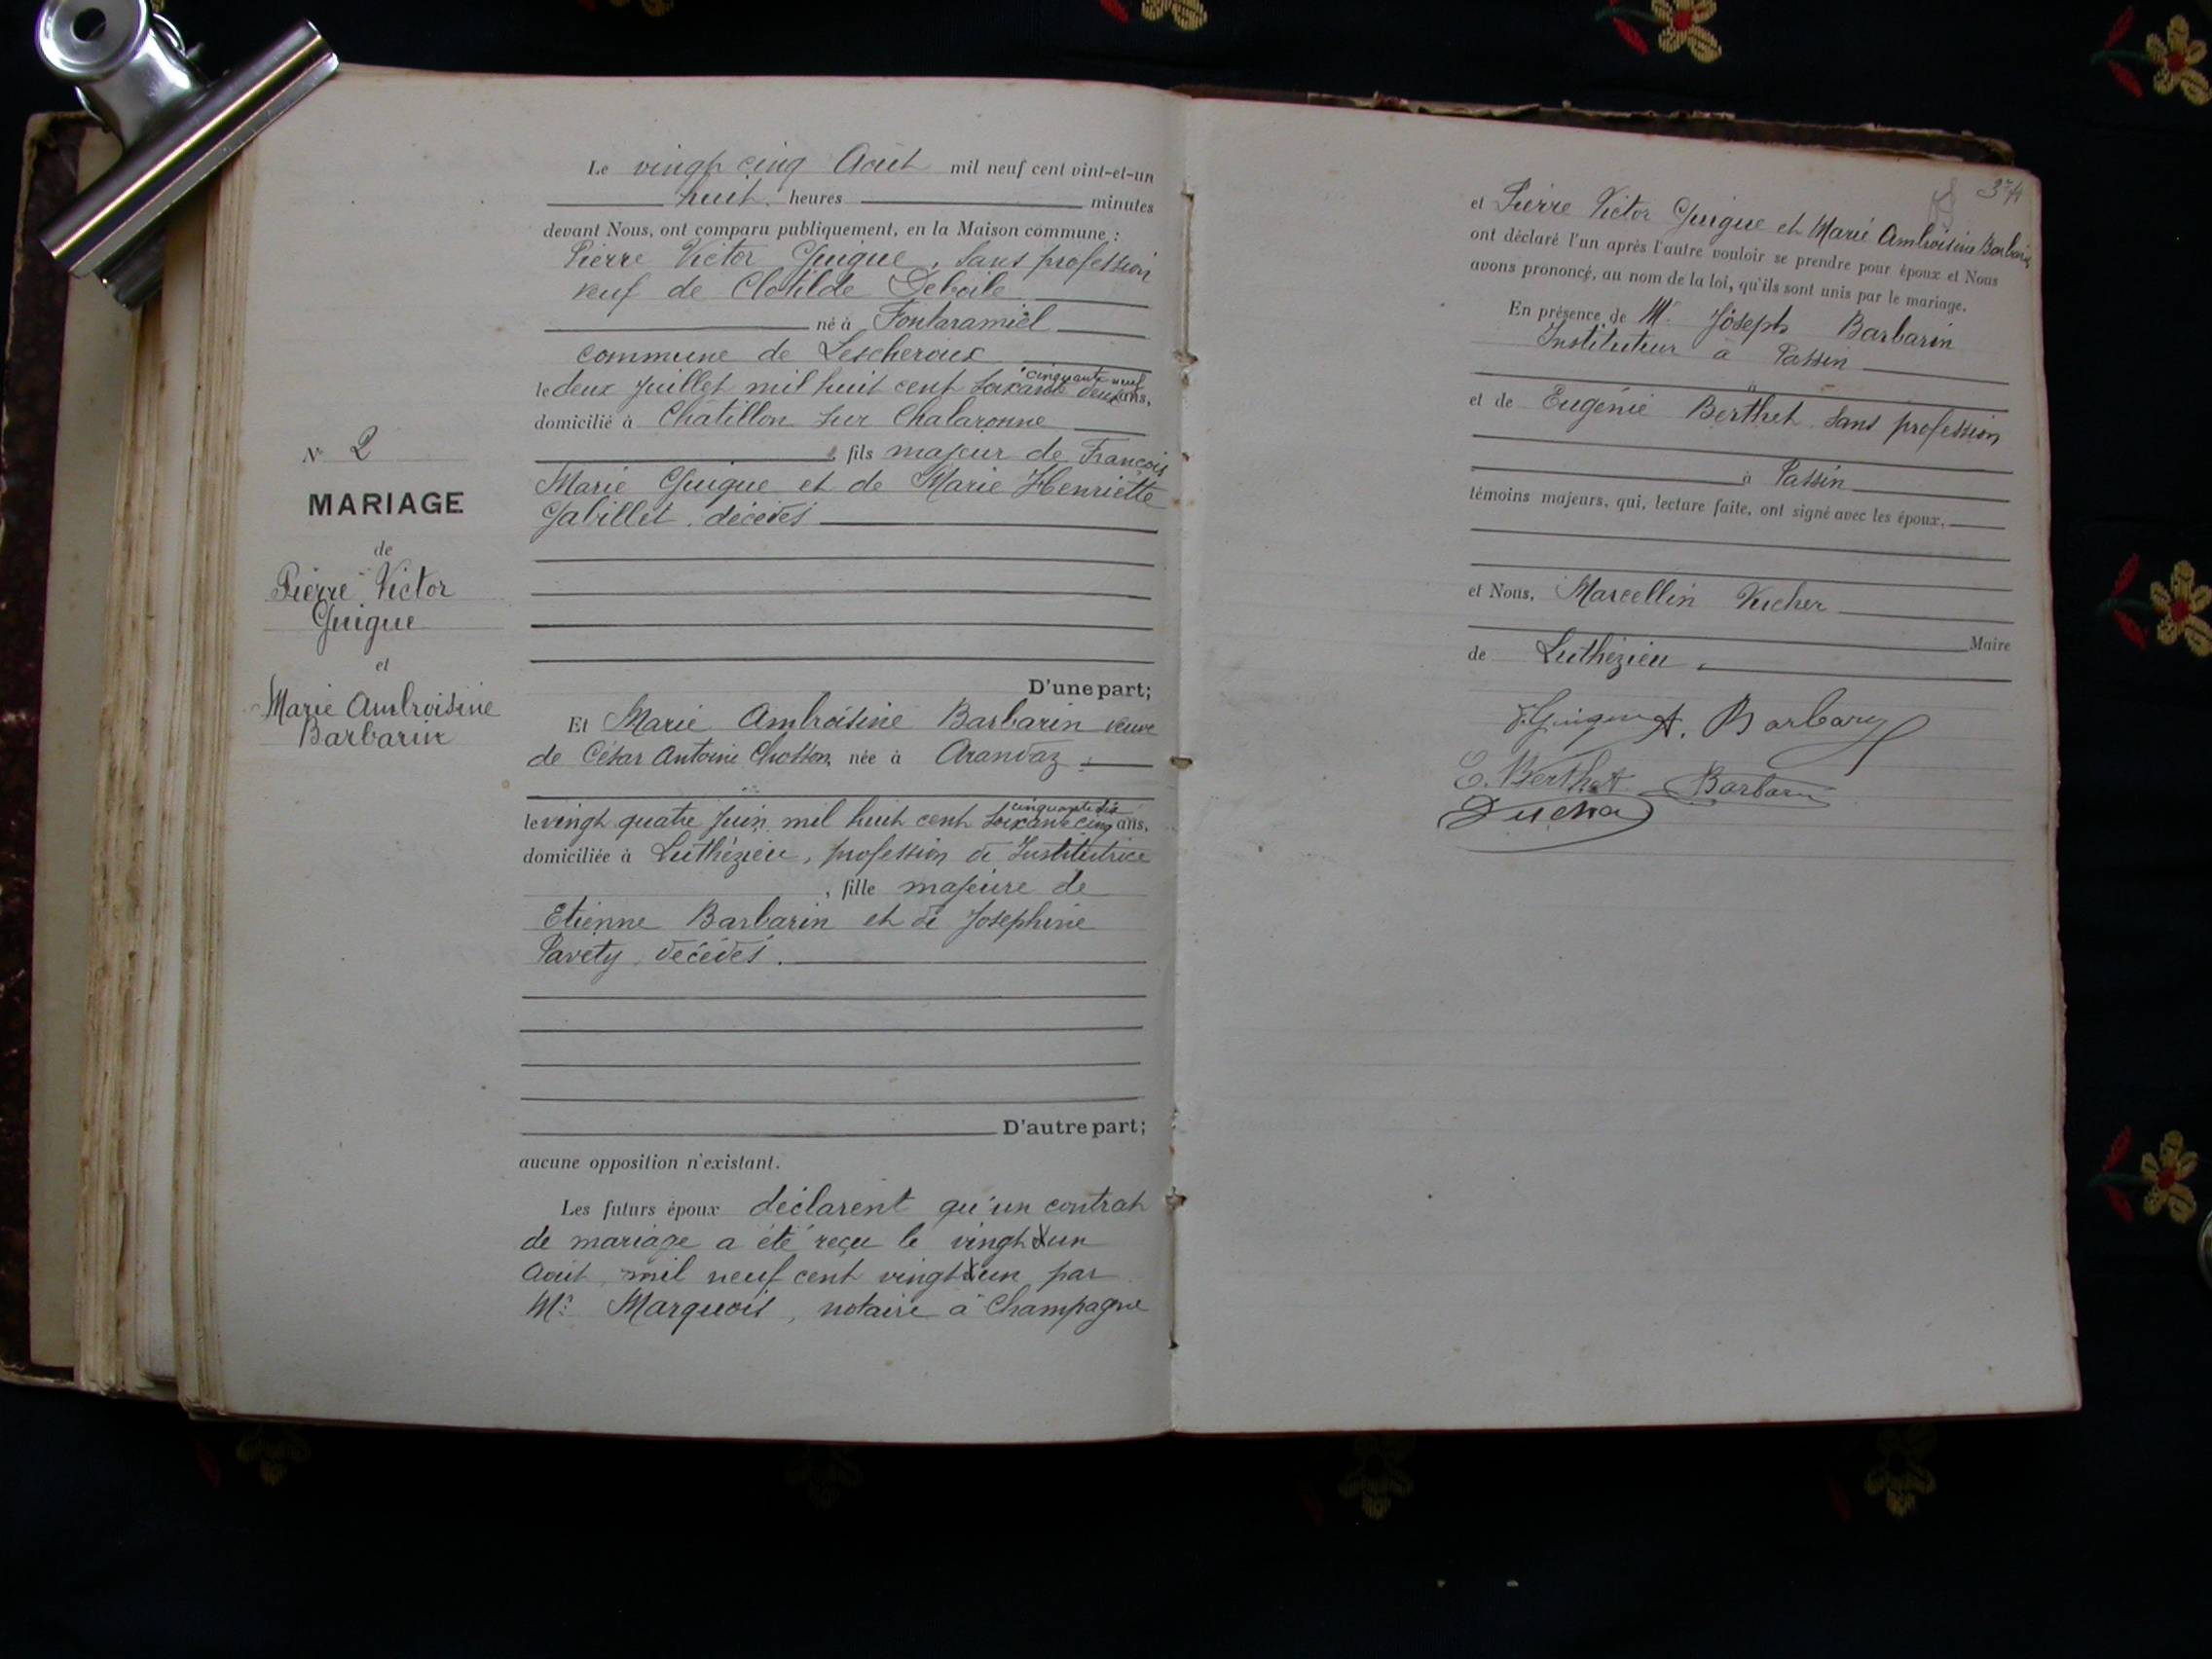 N° 2
MARIAGE
de
Pierre Victor
Guigue
et
Marie Ambroisine
Barbarin
Le vingt cinq Août mil neuf cent vint-et-un
huit heures minutes
devant Nous, ont comparu publiquement, en la Maison commune :
Pierre Victor Guigue, sans profession
veuf de Clotilde
né à
commune de Lescheroux
cinquante neuf
le deux Juillet mil huit cent soixante deux ans,
domicilié à Châtillon sur Chalaronne
, fils majeur de François
Marie Guigue et de Marie Henriette
Gabillet, décédés
D'une part;
Et Marie Ambroisine Barbarin veuve
de César Antoine Chosson, née à Arandaz
cinquante six
le vingt quatre Juin mil huit cent soixante cinq ans,
domiciliée à Luthézieu, profession de Institutrice
, fille majeure de
Etienne Barbarin et de Joséphine
Pavety, décédés.
D'autre part;
aucune opposition n'existant.
Les futurs époux déclarent qu'un contrat
de mariage a été reçu le vingt un
Août mil neuf cent vingt un par
Me Marquois, notaire à Champagne
et Pierre Victor Guigue et Marie Ambroisine Barbarin
ont déclaré l'un après l'autre vouloir se prendre pour époux et Nous
avons prononcé, au nom de la loi, qu'ils sont unis par le mariage.
En présence de M. Joseph Barbarin
Instituteur à Passin
à
et de Eugénie Berthet, sans profession
à Passin
témoins majeurs, qui, lecture faite, ont signé avec les époux,
et Nous, Marcellin Vucher
Maire
de Luthézieu.
V. Guigue A. Barbarin
E. Berthet Barbarin